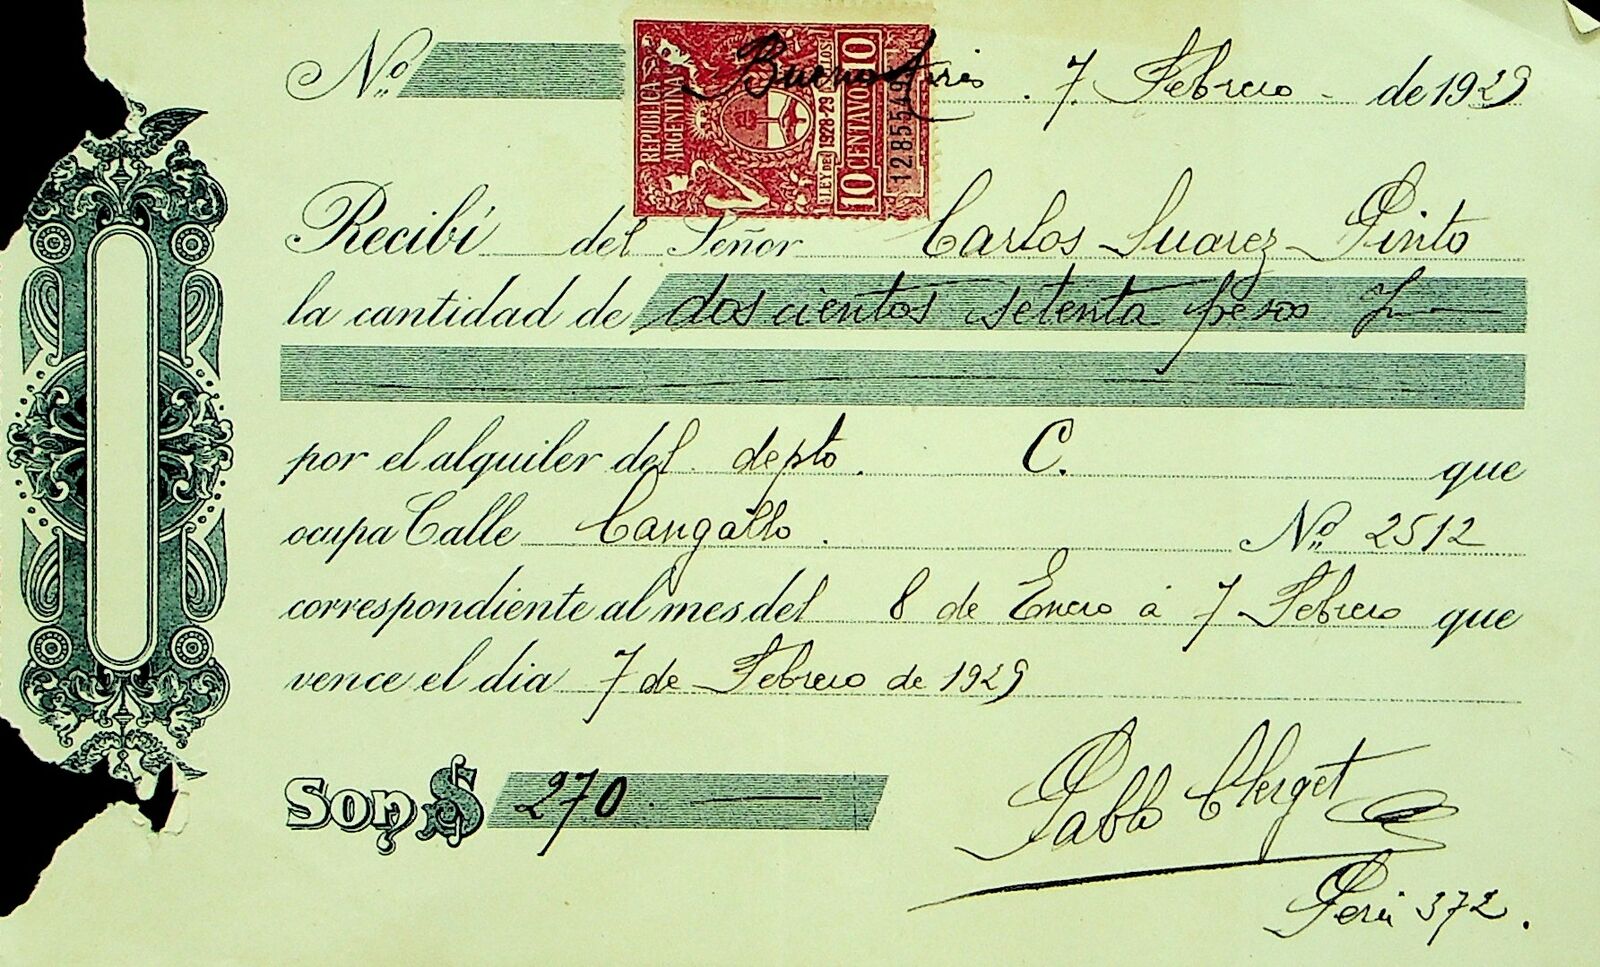 Nº Buenos Aires . 7 Febrero - de 1929
REPUBLICA ARGENTINA
LEY DE 1928-29
10 CENTAVOS 10
Recibí del Señor Carlos Suarez Pinto
la cantidad de doscientos setenta peso
por el alquiler del depto. C. que
ocupa Calle Cangallo . Nº 2512
correspondiente al mes del 8 de Enero á 7 Febrero que
vence el dia 7 de Febrero de 1929
Son $ 270
Pablo Clerget
Perú 372.